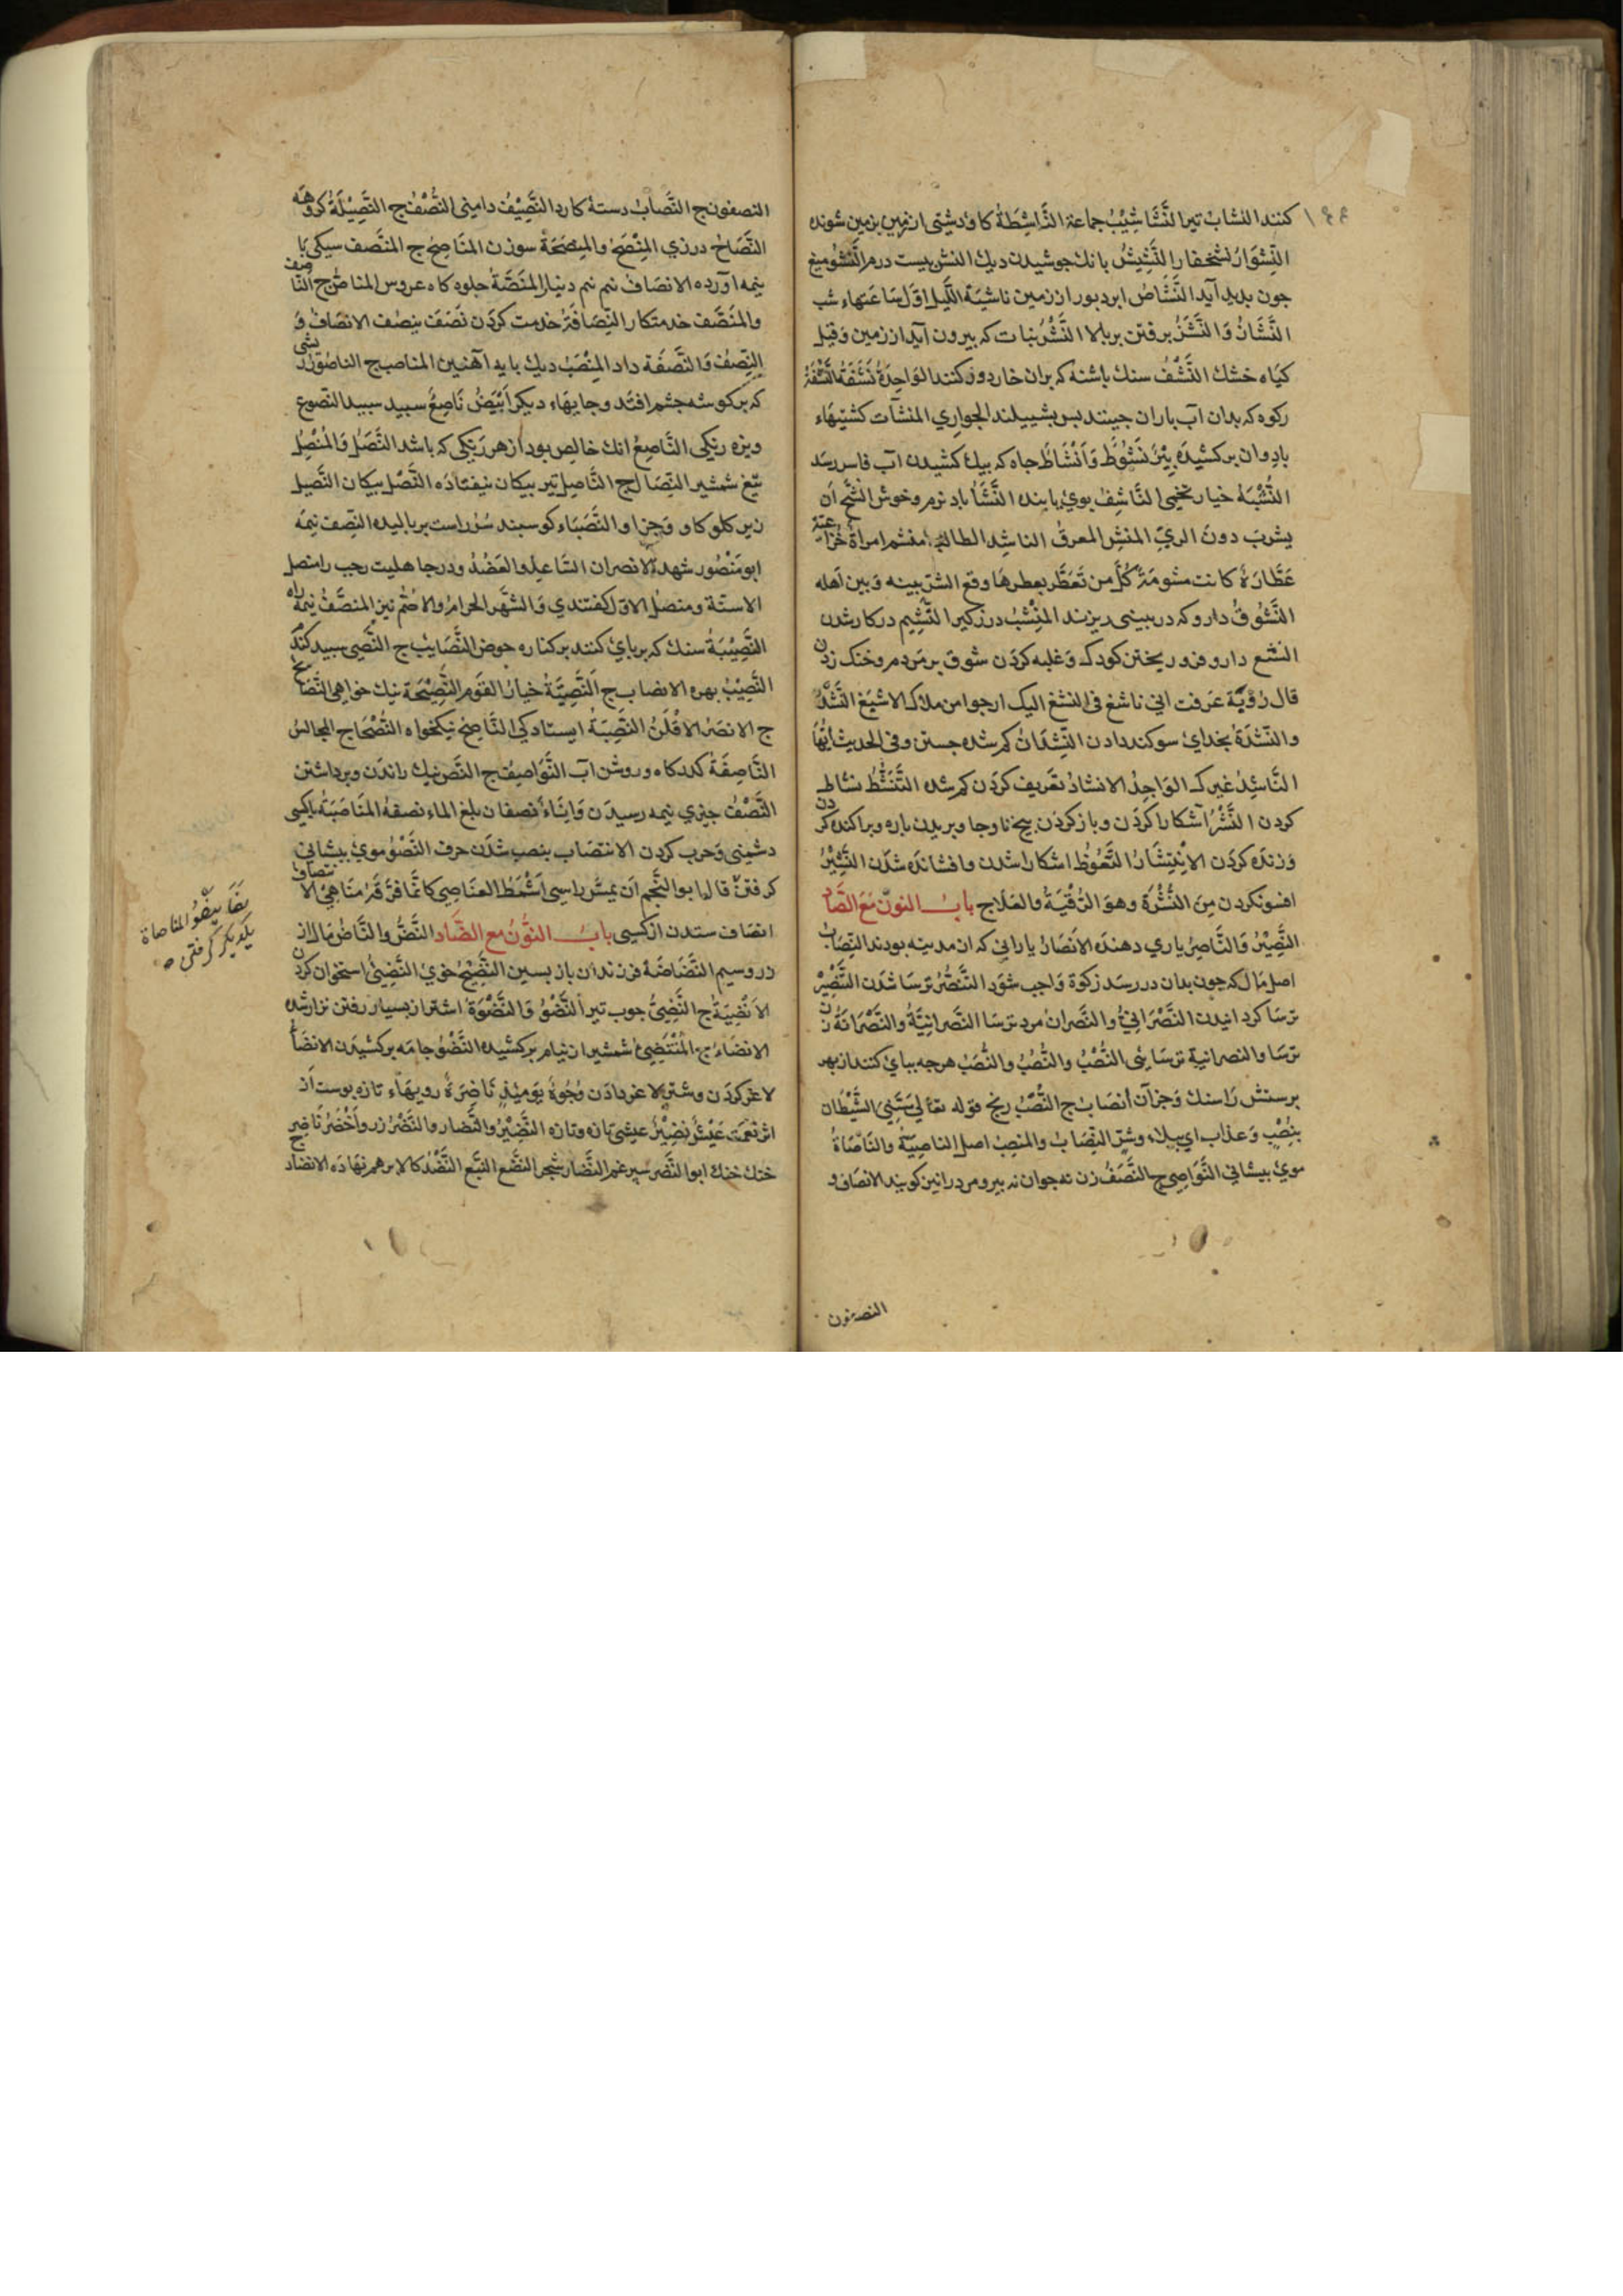 كنند النشاب تير النَّشَاشِيْبُ جماعة النَّاشِطَةُ كاو دشتی از زمین بزمین شونده
النِّشْوَارُ نشخفار النَّشِيْشُ بانك جوشيدن ديك النش بیست درم النَّشْوُ میغ
جون بدید آید النَّشَاصُ ابر دبور از زمین نَاشِيَةُ اللَّيْلِ اوّل سَاعَتهاء شب
النَّشَازُ وَالنَّشَزُ بر رفتن بر بالا النَّشْرُ نبات که بیرون آید از زمین وقیل
کیَاه خشك النَّشْفُ سنك باشنه که بران خار دور کنند الوَاحِدَةُ نَشْفَةُ النَّشْفَةُ
رکوه که بدان آب باران جینند بس بشيبلند الجواري المنشآت کشتیهاء
بادوان بر کشیدَه بِئْرٌ نَشُوْطٌ وَأَنْشَاطٌ جاه که بيك کشیدن آب فاسر رسد
النُّشْبَةُ خیار تخمی النَّاشِفُ بوئ یابنده النَّشَأُ باد نرم وخوش النشح أن
يشرب دونَ الريّ المنشر المعرف الناشد الطالب منشم امراة خُزَاعيّة
عَطَّارَةٌ كانت مشومَةٌ كُلُّ من تَعَطَّرَ بعطرهَا وقع الشرّ بينه وَبين اهله
النَّشُوقُ دارو که در بینی ریزند المِنْشَبُ درزکیر النَّشِيْم در کار شدن
النشع دارو فرو ریختن کودک وَغلبه کردَن شوق بر مَردم وخنک زدن
قال رُؤْيَة عَرفت اني ناشغ في النشغ اليك ارجوا من ملاك الاشبغ النَّشْدُ
والنّشْدَةُ بخدائ سوکند دادن النِّشْدَانُ کم شده جستن وفي الحديث ايها
النَّاشِدُ غيرك الوَاجِدُ الانشادُ تعَريف کردَن کم شده التَّنَشُّطُ نشاط
کردن النَّشْرُ آشکارا کردَن وباز کردَن بیخ نا وجا وبریدن باره وبراکنده کردن
وَزنده کردَن الإِنْتِشَارُ النَّعوُظ اشکارا شدن وافشانده شدَن النَّشِيْرُ
افسونکردن مِنَ النُّشْرَةِ وهوَ الرُّقْيَةُ والعَلاج بابُ النونّ مَعَ الصَّادِ
النَّصِيْرُ وَالنَّاصِرُ یاري دهنده الأَنصَارُ یارانی که از مدینه بودند النِّصَابُ
اصل مَال که جون بدان در رسَد زکوة وَاجب شوَد التَّنَصُّرُ ترسَا شدَن التَّنْصِيْرُ
ترسَا کردانیدن النَّصْرَانِيُّ والنَّصرانُ مرد ترسَا النَّصرانِيَّةُ والنَّصْرَانَةُ زن
ترسَا والنصرانية ترسَایی النُّصْبُ والنُّصُبُ والنَّصَبُ هرجه ببای کنند از بهر
برستش رَا سنك وَجز آن أنصَاب ج النُّصْبُ رنج قوله تعَالى مَسَّنِيَ الشَّيْطَان
بِنُصْبٍ وَعذاب اي ببلاء وشرّ النِّصَابُ والمنصِبُ اصل الناصِيَةُ والنَاصَاةُ
موئ بیشانی النَّوَاصِي ج النَّصَفُ زن نه جوان نه بیر ومرد را نیز کویند الانصَاف و
النصفون
النصفون ج النَّصَابُ دستهٔ کارد النَّصِيْفُ دامنی النُّصُفُ ج النَّصِيْلَةُ کروهه
النَّصَاحُ درزي المِنْصَحُ والمِنصَحَةُ سوزن المنَاصِحُ ج المنَصَّف سیکی با
نیمه آورده الانصَافُ نیم نیم دینار المنَصَّةُ جلوه کاه عروس المناصُّ ج النَّاصِفُ
والمنَصَف خدمتکار النِّصَافَةُ خدمت کردَن نَصَفَ ينصِف الانصَافُ وَ
النِّصْفُ وَالنَّصَفَة داد المِنْصَبُ دیك بایه آهنین المناصب ج الناصُوْرُ ریشی
که بر کوشه جشم افتد وجایهاء دیکر أَبْيَضُ نَاصِعٌ سبید سبید النصوع
ویزه رنکی النَّاصِعُ انك خالِص بود از هر رَنکی که باشد النَّصْلُ وَالمُنْصُلُ
تیغ شمشیر النِّصَال ج النَّاصِل تیر بیکان بیفتاده النَّصْل بیکان النَّصِيل
زیر کلو کاو وَجز او النَّصْبَاء کوسبند سُرُ راست بر بالیده النِّصف نیمَه
ابومَنْصُور شهد الانصران السَّاعد والعَضُدُ ودر جاهلیت رجب را منصل
الاسنّة ومنصل الاوّل کفتندي وَالشهَّر الحرامُ والاصَمّ نیز المنصَّفُ نیمه راه
النَّصِيْبَةُ سنك که بر بایئ کنند بر کناره حوض النَّصَايِبُ ج النَّصِي سبید کند
النَّصِيْبُ بهره الانصباء ج النَّصِيَّةُ خیارُ القوم النَّصِيْحَة نيك خواهی النَّصَايح
ج الانصَرُ الأَقْلَفُ النَّصِبَةُ ایستادکی النَّاصِح نیکخواه النُّصَحَاء ج المجالسُ
النَّاصِفَةُ کدرکاه وروشن آب النَّوَاصِيفُ ج النَّصّ نیك راندن وبرداشتن
النَّصْفُ جیزي نیمه رسیدَن وَانَاءٌ نصفان بلغ الماء نصفهُ المنَاصَبَةُ باکسی
دشمنی وَحرب کردن الانتصَاب بنصب شدَن حرف النَّصْوُ موئ بیشانی
کرفتن قال ابو النَّجم اَن يمسّ راسي اَشْمَطَ العنَاصِي كانمَّا فرّقَهُ مُنَاصٍ الا
نتصَافُ
انصَاف ستدن از کسی بابُ النّوُنُ مع الضّاد النَّضُّ والنَّاضُّ مَال از
زر وسیم النَّضَاضَةُ فرزندان باز بسین النَّضِيْحُ خوئ النَّضِيُّ استخوان کردن
الأَنْضِيَةُ ج النَّضِيُّ جوب تیر النِّضْوُ وَالنِّضْوَةُ اشتر از بسیار رفتن نزار شده
الانضَاءُ ج المُنْتَضِي شمشیر از نیام بر کشیده النَّضْوُ جامَه بر کشیدَن الانضَاءُ
لاغر کردَن وشتر لاغر دادَن وُجُوهٌ يَوْمَئِذٍ نَاضِرَةٌ رویهاء تازه بوست از
اثر نعمت عَيْشٌ نَضِيْرٌ عیشی تازه النَّضِيْرُ والنُّضار والنَّضْرُ زر واَخْضَرُ نَاضِر
خنك خنك ابو النَّضر سیر غم النُّضار شجر النَّضَع النبع النَّضَدُ کالا بر هم نهاده الانضاد
نصَا ينصُو المناصاة
یکدیکر کرفتن